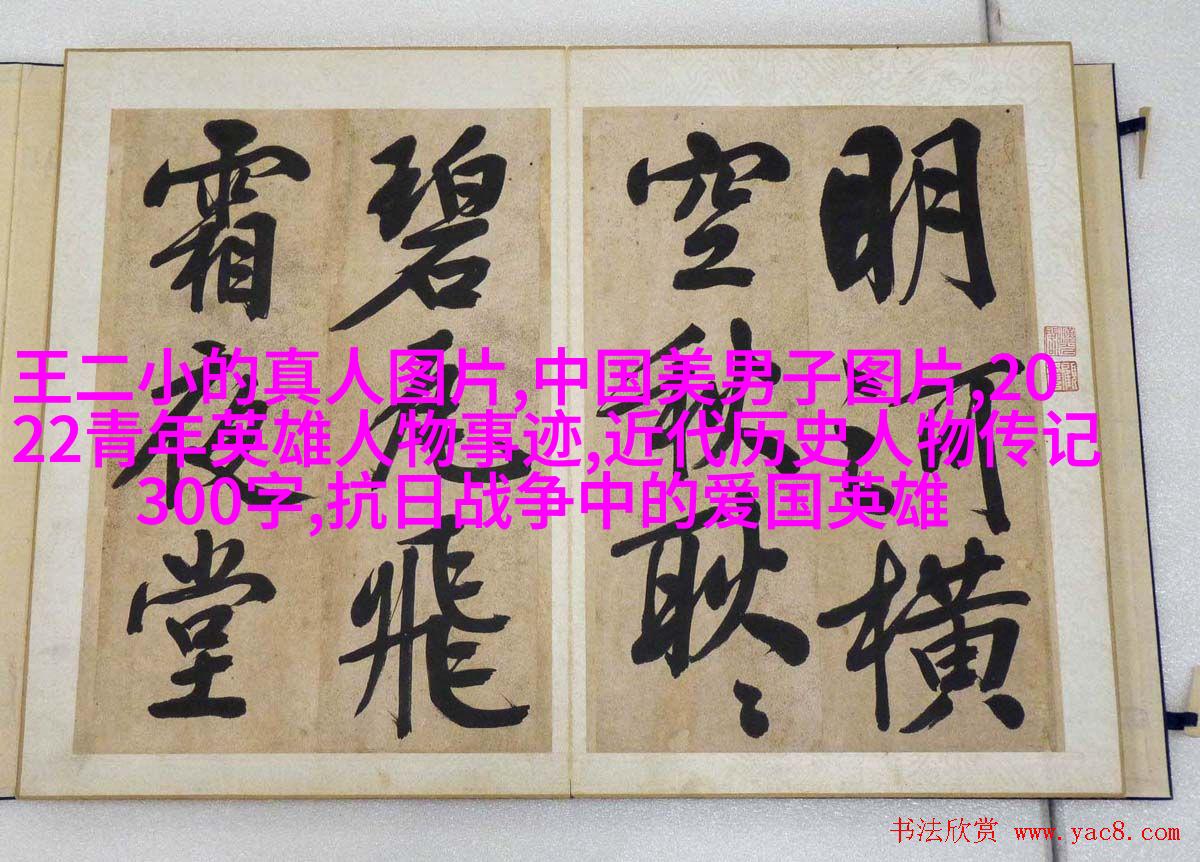 明河橫
空秋耿〻
碧瓦飛
霜夜堂
王二小的真人图片,中国美男子图片,20
22青年英雄人物事迹,近代历史人物传记
300字,抗日战争中的爱国英雄
书法欣赏 www.yac8.com